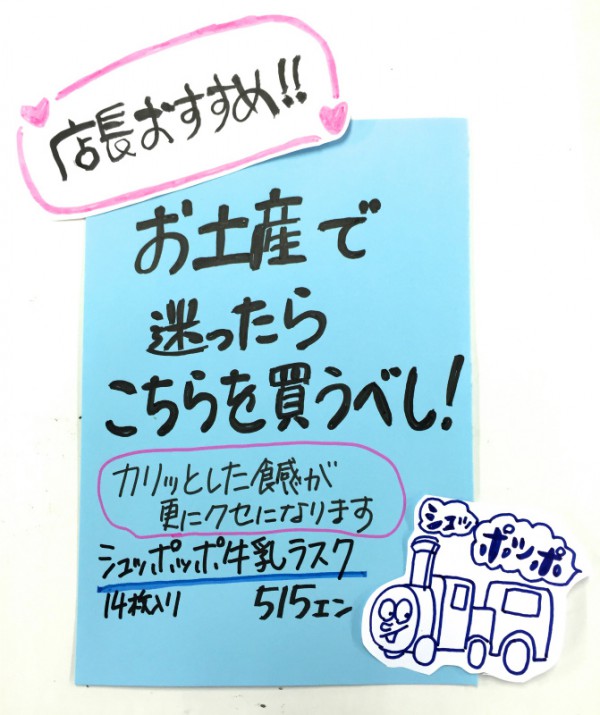 店長おすすめ!!
お土産で
迷ったら
こちらを買うべし!
カリッとした食感が
更にクセになります
シュッポッポ牛乳ラスク
14枚入り 515エン
シュッ
ポッポ